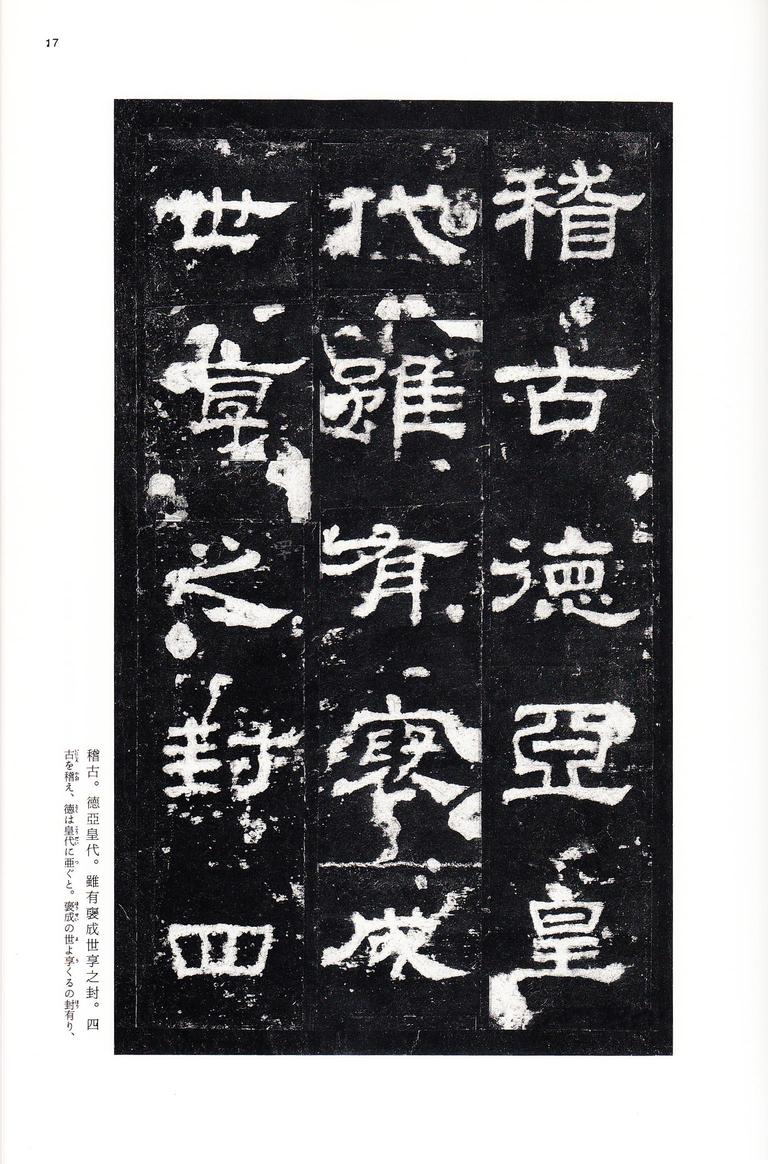 17
稽古德亞皇
代雖有襃成
世享之封四
稽古。德亞皇代。雖有襃成世享之封。四
古を稽え、徳は皇代に亜ぐと。褒成の世よ享くるの封有り、